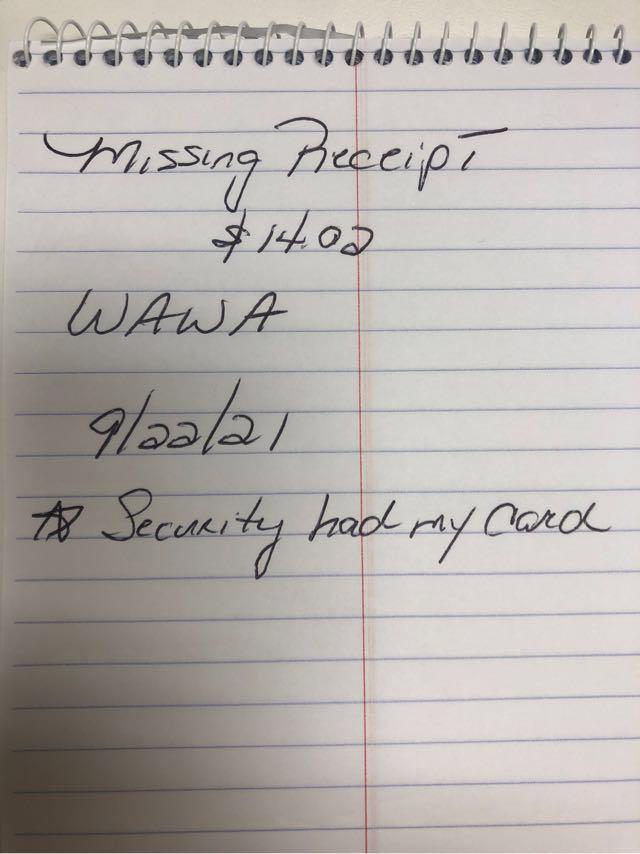 Missing Receipt
$14.02
WAWA
9/22/21
☆ Security had my Card